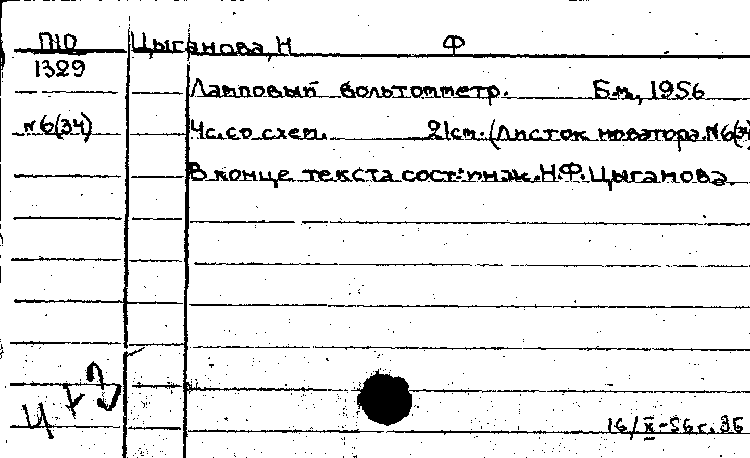 П10 Цыганова, Н Ф
1329
Ламповый вольтомметр. Б.м., 1956
№6(34) 4с. со схем. 21см. (Листок новатора. №6(34)
В конце текста сост: инж. Н.Ф. Цыганова.
16/X-56г. ЗБ